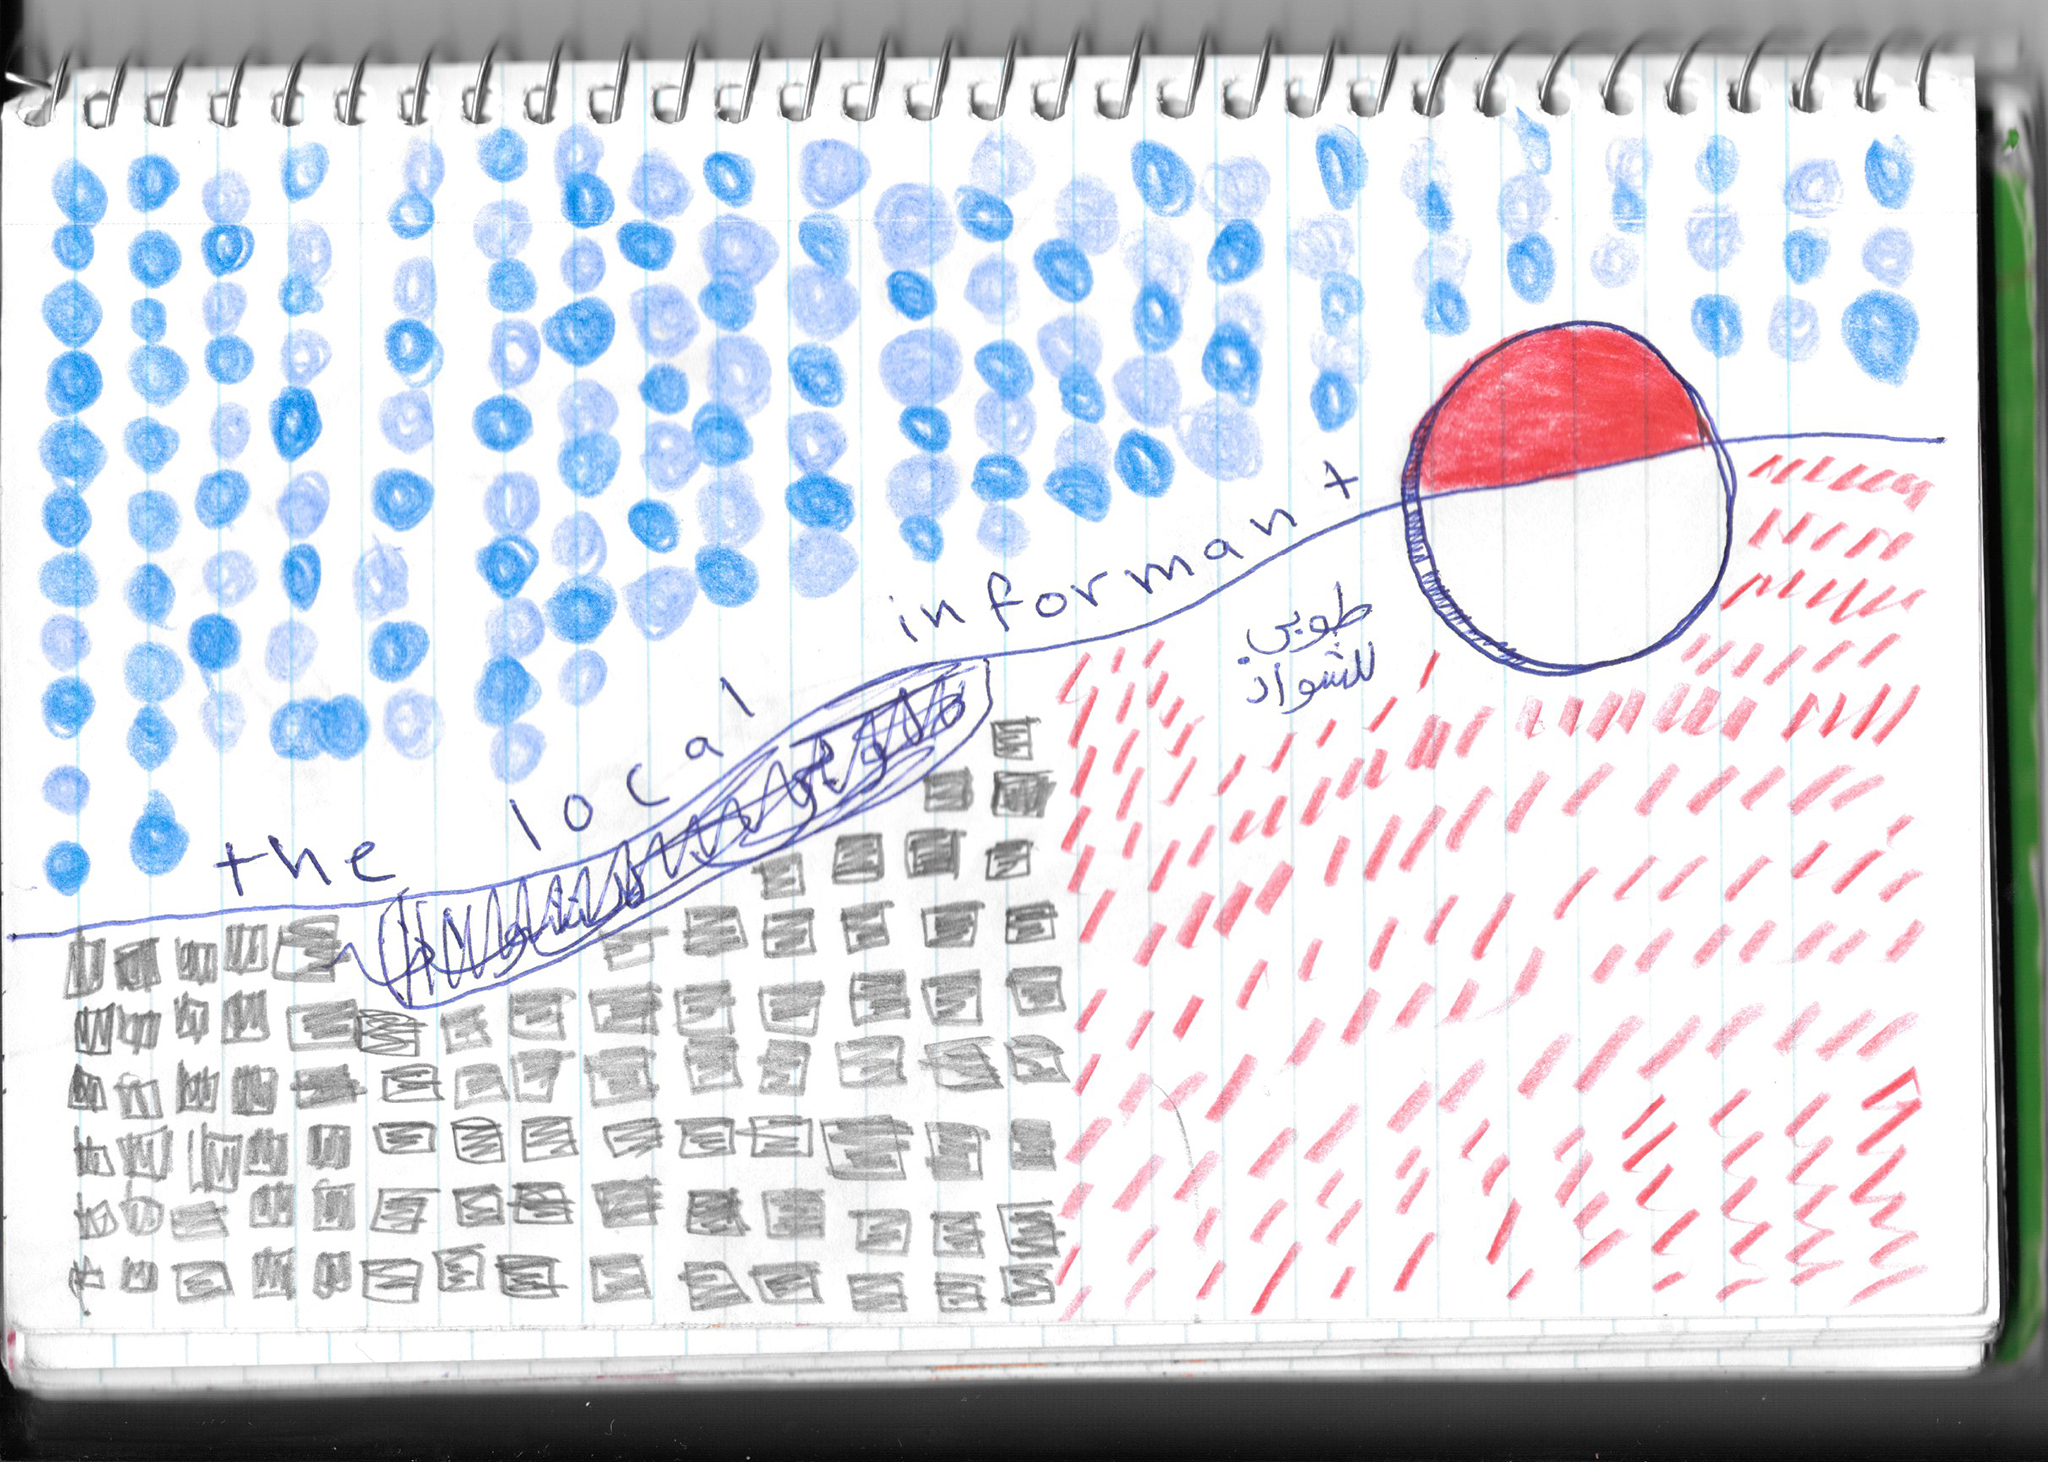 the local informant
طوبى
للشواذ